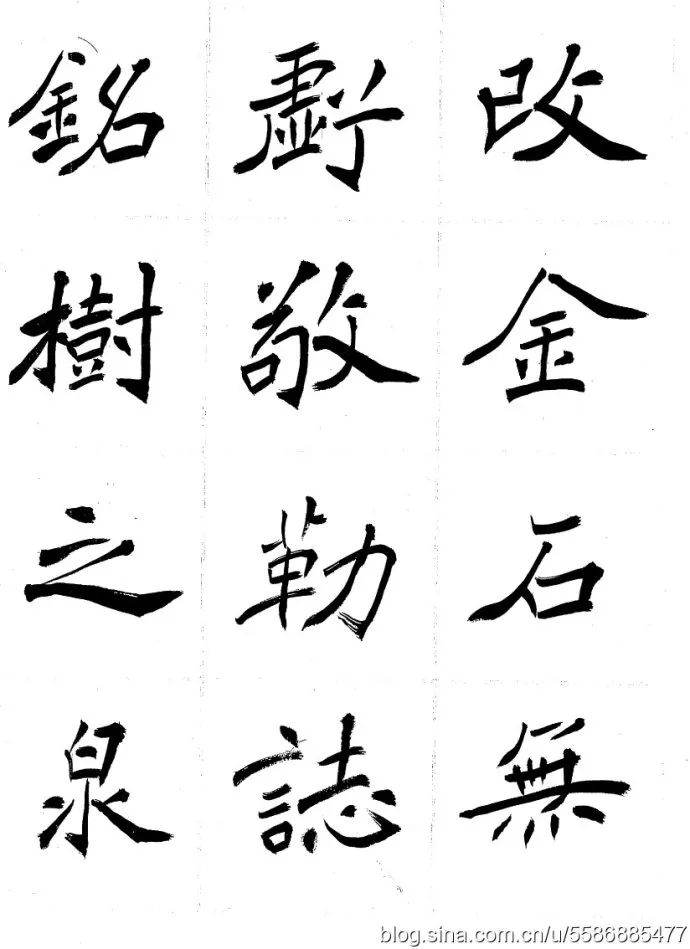 改金石無
虧敬勒誌
銘樹之泉
blog.sina.com.cn/u/5586885477